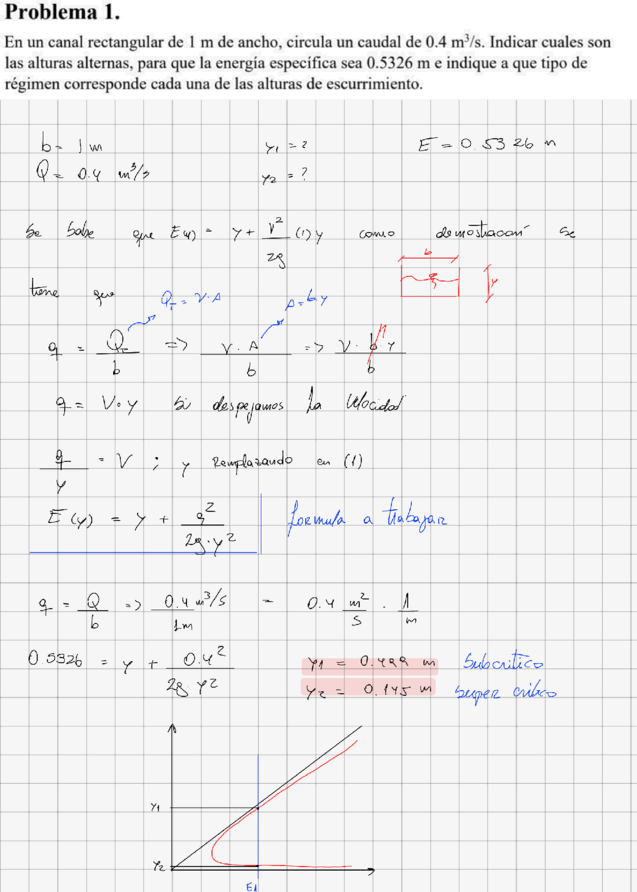 Problema 1.
En un canal rectangular de 1 m de ancho, circula un caudal de 0.4 m³/s. Indicar cuales son
las alturas alternas, para que la energía específica sea 0.5326 m e indique a que tipo de
régimen corresponde cada una de las alturas de escurrimiento.
b = 1 m y1 = ? E = 0.5326 m
Q = 0.4 m³/s y2 = ?
Se sabe que E(y) = y + v²/2g (1) y como demostracion se
b
tiene que Q_T = V·A A = b·y q y
q = Q_T/b => V·A/b => V·b·y/b
q = V·y Si despejamos la Velocidad
q/y = V ; y Remplazando en (1)
E(y) = y + q²/2g·y² formula a trabajar
q = Q/b => 0.4 m³/s / 1m = 0.4 m²/s · 1/m
0.5326 = y + 0.4²/2g y² y1 = 0.499 m Subcritico
y2 = 0.145 m super critico
y1
y2
E1